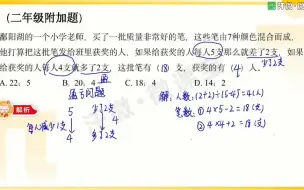 (二年级附加题)
鄱阳湖的一个小学老师，买了一批质量非常好的笔，这些笔由7种颜色混合而成，
他打算把这批笔发给班里获奖的人，如果给获奖的人每人5支那么就差了2支，如果
给获奖的人每人4支就多了2支，问老师买了一批笔有（18）支，获奖的有（4）人。
A. 22；5 B. 20；4 C. 18；4 D. 14；2
解析
盈亏问题
5 少了2支
每人减少1支
4 多了2支
解：人数：(2+2)÷(5-4)=4(人)
笔数：①4×5-2=18(支)
②4×4+2=18(支)